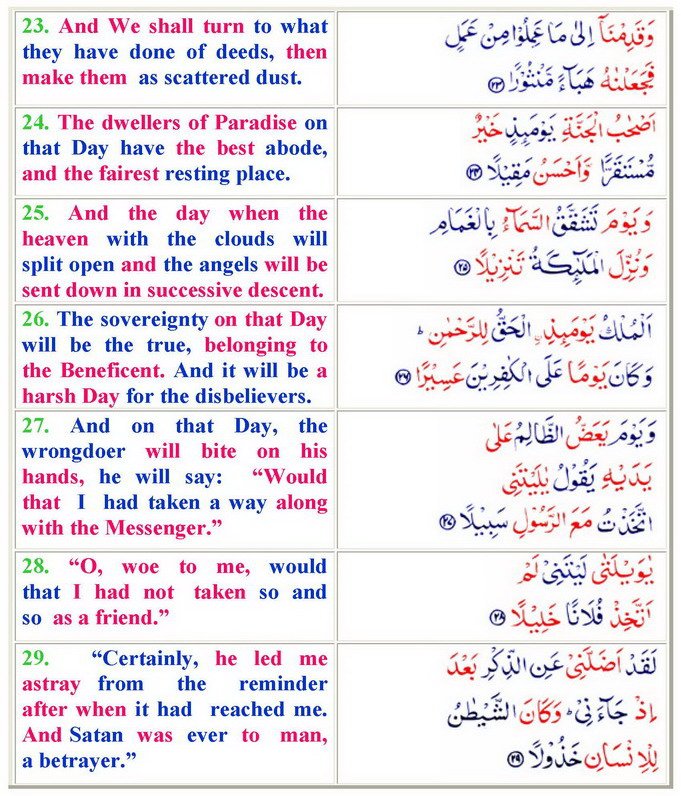 23. And We shall turn to what
they have done of deeds, then
make them as scattered dust.
وَقَدِمْنَآ اِلٰى مَا عَمِلُوْا مِنْ عَمَلٍ
فَجَعَلْنٰهُ هَبَآءً مَّنْثُوْرًا ۝۲۳
24. The dwellers of Paradise on
that Day have the best abode,
and the fairest resting place.
اَصْحٰبُ الْجَنَّةِ يَوْمَئِذٍ خَيْرٌ
مُّسْتَقَرًّا وَّاَحْسَنُ مَقِيْلًا ۝۲۴
25. And the day when the
heaven with the clouds will
split open and the angels will be
sent down in successive descent.
وَيَوْمَ تَشَقَّقُ السَّمَآءُ بِالْغَمَامِ
وَنُزِّلَ الْمَلٰٓئِكَةُ تَنْزِيْلًا ۝۲۵
26. The sovereignty on that Day
will be the true, belonging to
the Beneficent. And it will be a
harsh Day for the disbelievers.
اَلْمُلْكُ يَوْمَئِذِ ِ۟الْحَقُّ لِلرَّحْمٰنِ ؕ
وَكَانَ يَوْمًا عَلَى الْكٰفِرِيْنَ عَسِيْرًا ۝۲۶
27. And on that Day, the
wrongdoer will bite on his
hands, he will say: “Would
that I had taken a way along
with the Messenger.”
وَيَوْمَ يَعَضُّ الظَّالِمُ عَلٰى
يَدَيْهِ يَقُوْلُ يٰلَيْتَنِى
اتَّخَذْتُ مَعَ الرَّسُوْلِ سَبِيْلًا ۝۲۷
28. “O, woe to me, would
that I had not taken so and
so as a friend.”
يٰوَيْلَتٰى لَيْتَنِىْ لَمْ
اَتَّخِذْ فُلَانًا خَلِيْلًا ۝۲۸
29. “Certainly, he led me
astray from the reminder
after when it had reached me.
And Satan was ever to man,
a betrayer.”
لَقَدْ اَضَلَّنِىْ عَنِ الذِّكْرِ بَعْدَ
اِذْ جَآءَنِىْ ؕ وَكَانَ الشَّيْطٰنُ
لِلْاِنْسَانِ خَذُوْلًا ۝۲۹